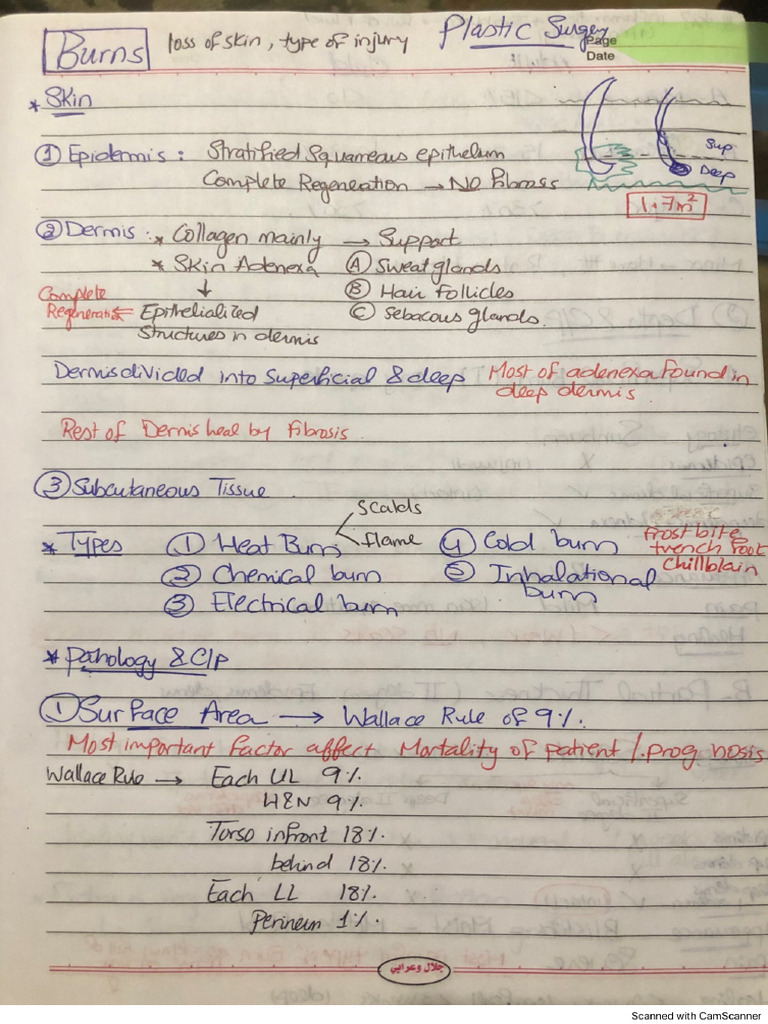 Burns loss of skin, type of injury Plastic Surgery
Page
Date
* Skin
① Epidermis : Stratified Squameous epithelum
Complete Regeneation → No fibross
Sup
Deep
1.7m²
② Dermis : * Collagen mainly → Support
* Skin Adenexa Ⓐ Sweat glands
↓ Ⓑ Hair follicles
Complete Regeneration ⇐ Epithelialized Ⓒ Sebacous glands.
Structures in dermis
Dermis divided into Superficial & deep Most of adenexa found in
deep dermis.
Rest of Dermis heal by fibrosis.
③ Subcutaneous Tissue
* Types ① Heat Burn Scalds
flame
④ Cold burn frost bite
trench foot
chillblain
② Chemical burn ⑤ Inhalational
burn
③ Electrical burn
* Pathology & C/P
① Surface Area → Wallace Rule of 9%.
Most important factor affect Mortality of patient /. prognosis
Wallace Rule → Each UL 9%.
H&N 9%.
Torso infront 18%.
behind 18%.
Each LL 18%.
Perineum 1%.
جلال وعرابي
Scanned with CamScanner